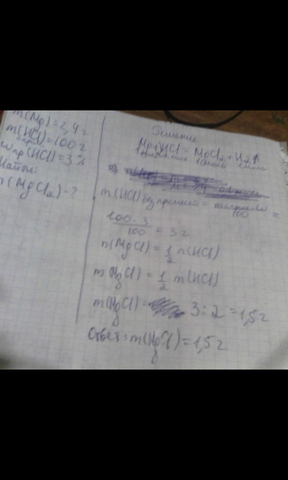 m(Mg)=2,4г
m(HCl)=100г
wпр(HCl)=3%
Найти:
m(MgCl₂)-?
Решение
Mg+HCl = MgCl₂+H₂↑
m(HCl)без примесей =
100·3/100 = 3г
n(MgCl)=1/2 n(HCl)
m(MgCl)=1/2 m(HCl)
m(MgCl)= 3:2=1,5г
Ответ: m(MgCl)=1,5г